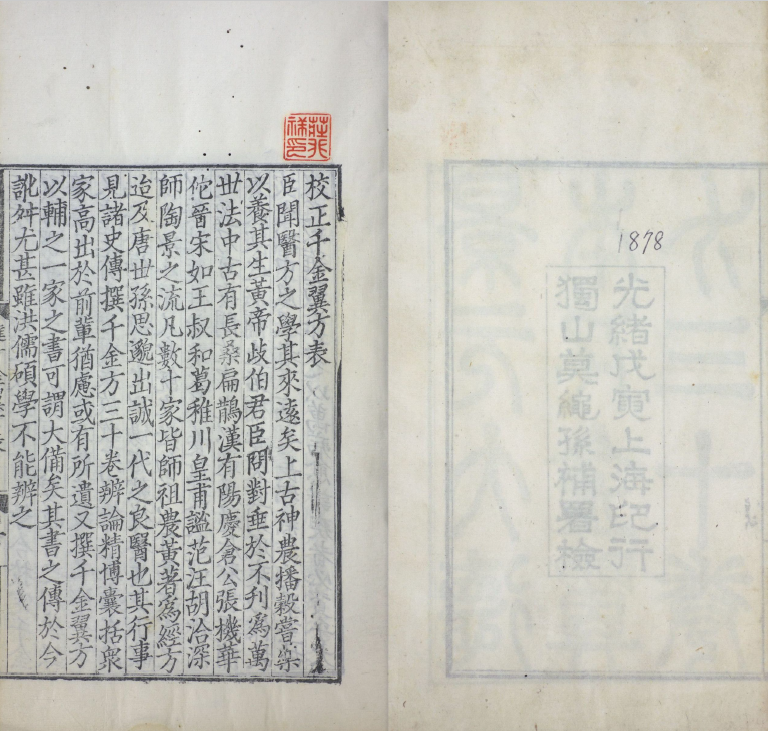 1878
光緒戊寅上海印行
獨山莫繩孫補署檢
校正千金翼方表
臣聞醫方之學其來遠矣上古神農播穀嘗藥
以養其生黃帝歧伯君臣問對垂於不刋爲萬
世法中古有長桑扁鵲漢有陽慶倉公張機華
佗晉宋如王叔和葛稚川皇甫謐范汪胡洽深
師陶景之流凡數十家皆師祖農黃著爲經方
迨及唐世孫思邈出誠一代之良醫也其行事
見諸史傳撰千金方三十卷辨論精博囊括衆
家高出於前輩猶慮或有所遺又撰千金翼方
以輔之一家之書可謂大備矣其書之傳於今
訛舛尤甚雖洪儒碩學不能辨之